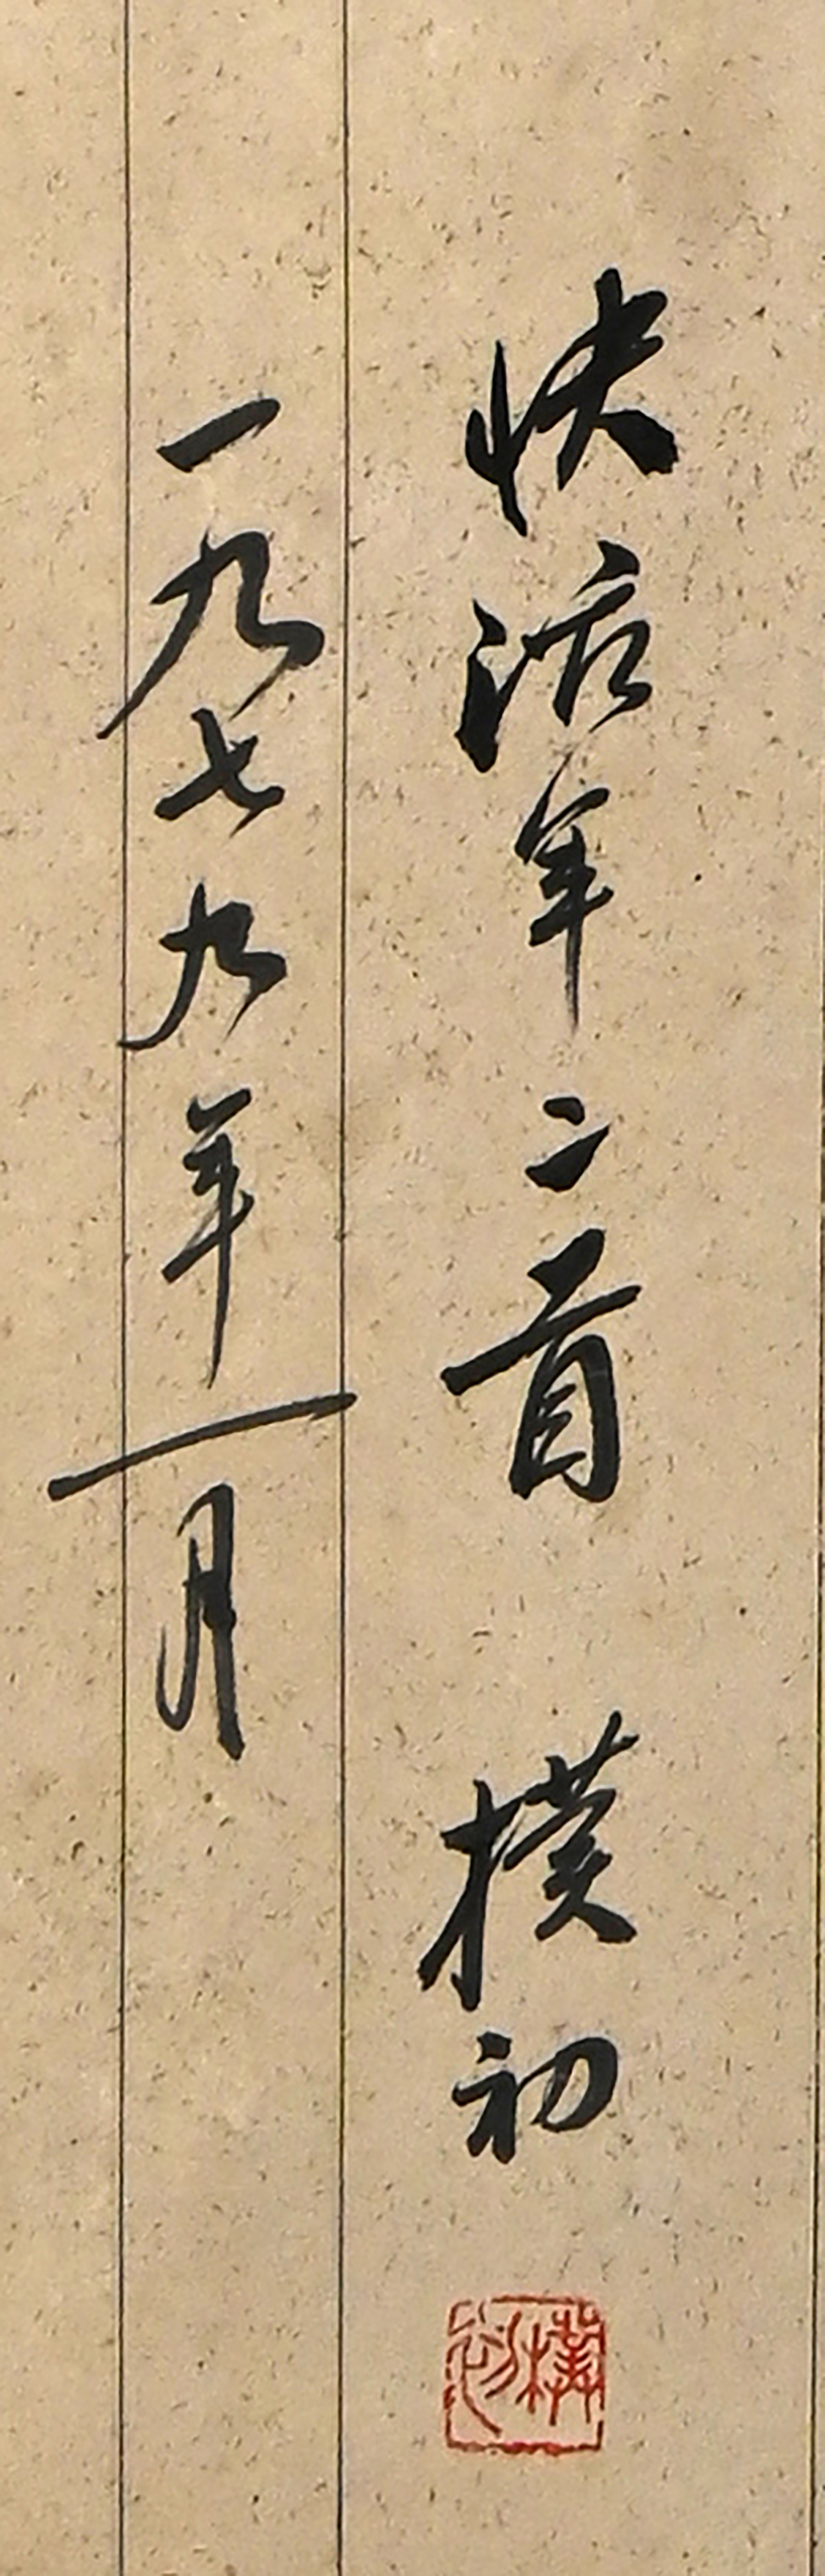 快活年二首 樸初
一九七九年一月
樸初